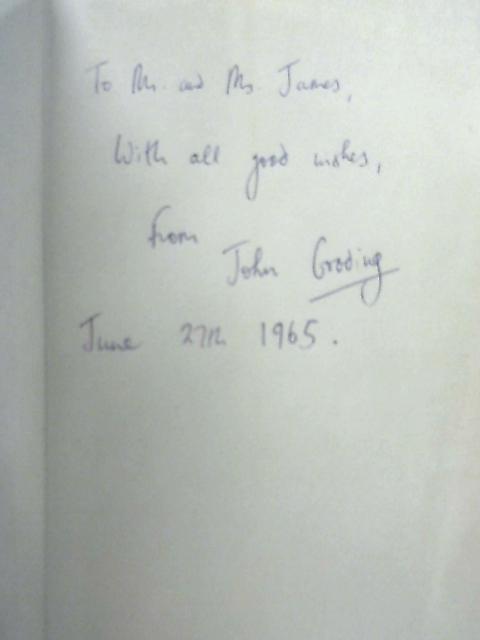 To Mr. and Mrs. James,
With all good wishes,
from
John Groding
June 27th 1965.